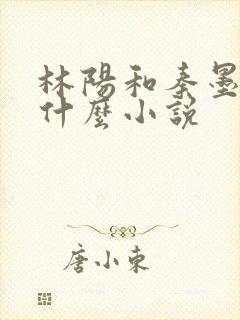 林陽和秦墨
什麼小說
唐小東